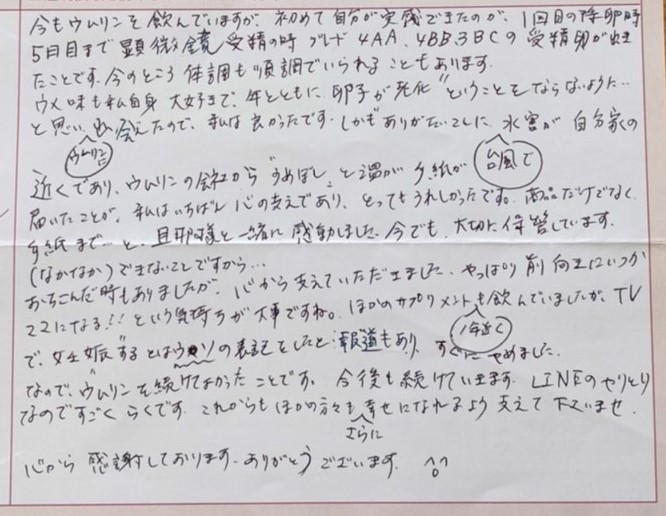 今もウムリンを飲んでいますが、初めて自分が実感できたのが、1回目の採卵時
5日目まで顕微鏡受精の時 グレード4AA、4BB、3BCの受精卵が出き
たことです。今のところ体調も順調でいられることもあります。
ウメ味も私自身大好きで、年とともに、卵子が老化”ということをならないように…
と思い、出会えたので、私は良かったです。しかもありがたいことに、水害が自分家の
ウムリンに
台風で
近くであり、ウムリンの会社から“うめぼし”と温かい手紙が
届いたことが、私はいちばん心の支えであり、とってもうれしかったです。商品だけでなく、
手紙まで…と、旦那様と一緒に感動しました。今でも、大切に保管しています。
(なかなか)できないことですから…
おちこんだ時もありましたが、心から支えていただきました。やっぱり前向きにいつか
ママになる!!という気持ちが大事ですね。ほかのサプリメントも飲んでいましたが、TV
1年近く
で、妊娠”するとはウソの表記をしたと報道もあり、すぐにやめました。
なので、“ウムリンを続けてよかったことです。今後も続けていきます。LINEのやりとり
なのですごくらくです。これからもほかの方々も幸せになれるよう支えて下さいませ。
さらに
心から感謝しております。ありがとうございます。